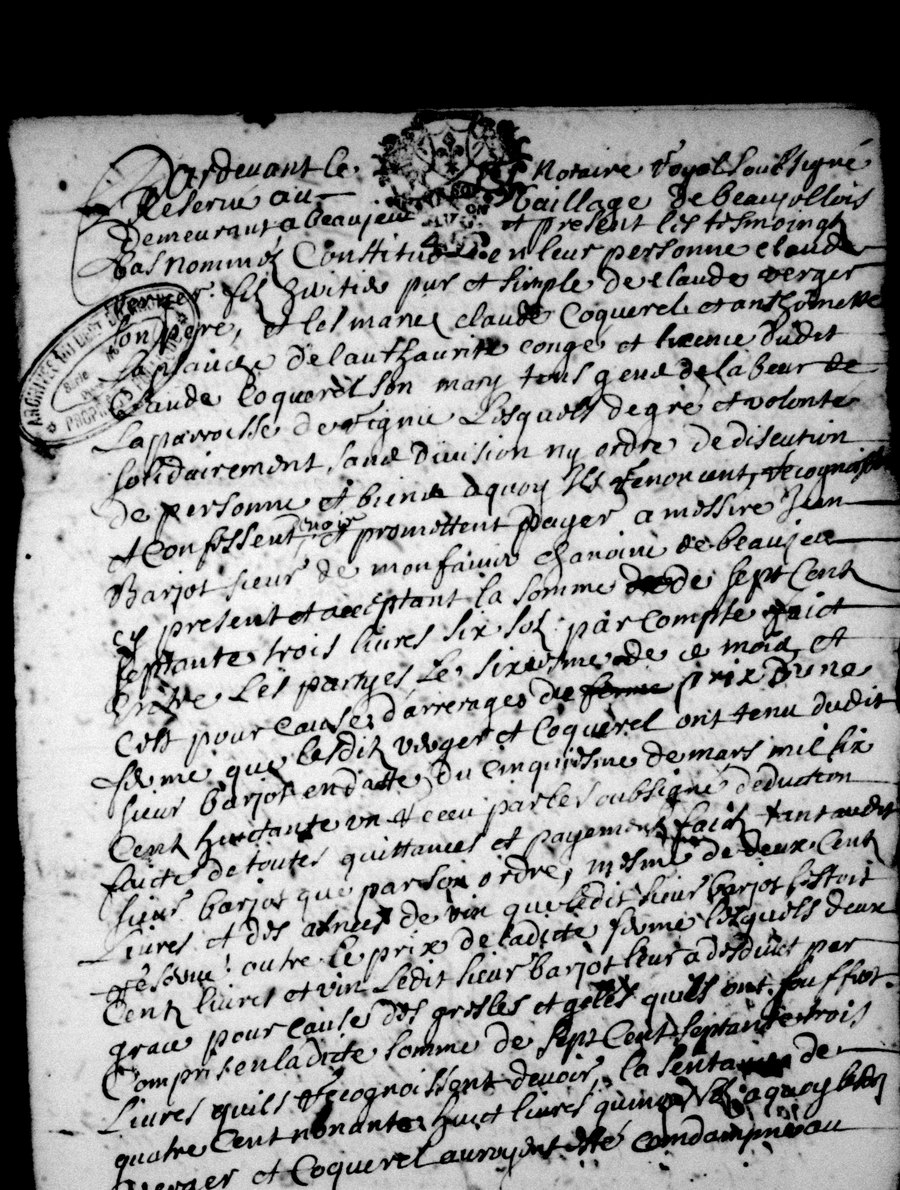 Pardevant le Notaire Royal soubsigné
Reservé au Bailliage de beaujollois
demeurant a beaujeu et present les tesmoingz
bas nommez Constitué en leur personne claude
verger filz pur et simple de claude verger
son pere, et les mariez claude Coquerel et anthoinette
laplace de lauthaurité congé et licence dudit
Claude Coquerel son mary tous gens de labeur de
la parroisse de Lesquels de gré et volonté
solidairement sans division ny ordre de discution
de personne et biens a quoy ilz renoncent, recognoissent
et confessent devoir et promettent payer a messire Jean
Barjot sieur de chanoine de beaujeu
cy present et acceptant la somme de sept Cent
septante trois livres six solz par compte faict
entre les partyes le sixiesme de ce mois, et
C'est pour cause d'arrerages de ferme prix d'une
ferme que lesditz verger et Coquerel ont tenu dudit
sieur barjot en datte du cinquiesme de mars mil six
Cent huictante un receu par le soubsigné deduction
faicte de toutes quittances et payement faictz tant audit
sieur barjot que par son ordre, mesme de deux Cent
Livres et des asnées de vin que ledit sieur barjot s'estoit
reservé outre le prix de ladicte ferme lesquels deux
Cent livres et vin Ledit sieur barjot leur a desduict par
grace pour cause des gresles et gelées qu'ils ont souffert
Compris en ladicte somme de sept Cent septante trois
Livres quils recognoissent devoir, la sentance de
quatre Cent nonante huict livres quinze solz a quoy lesditz
verger et Coquerel auroyent esté condampnés au